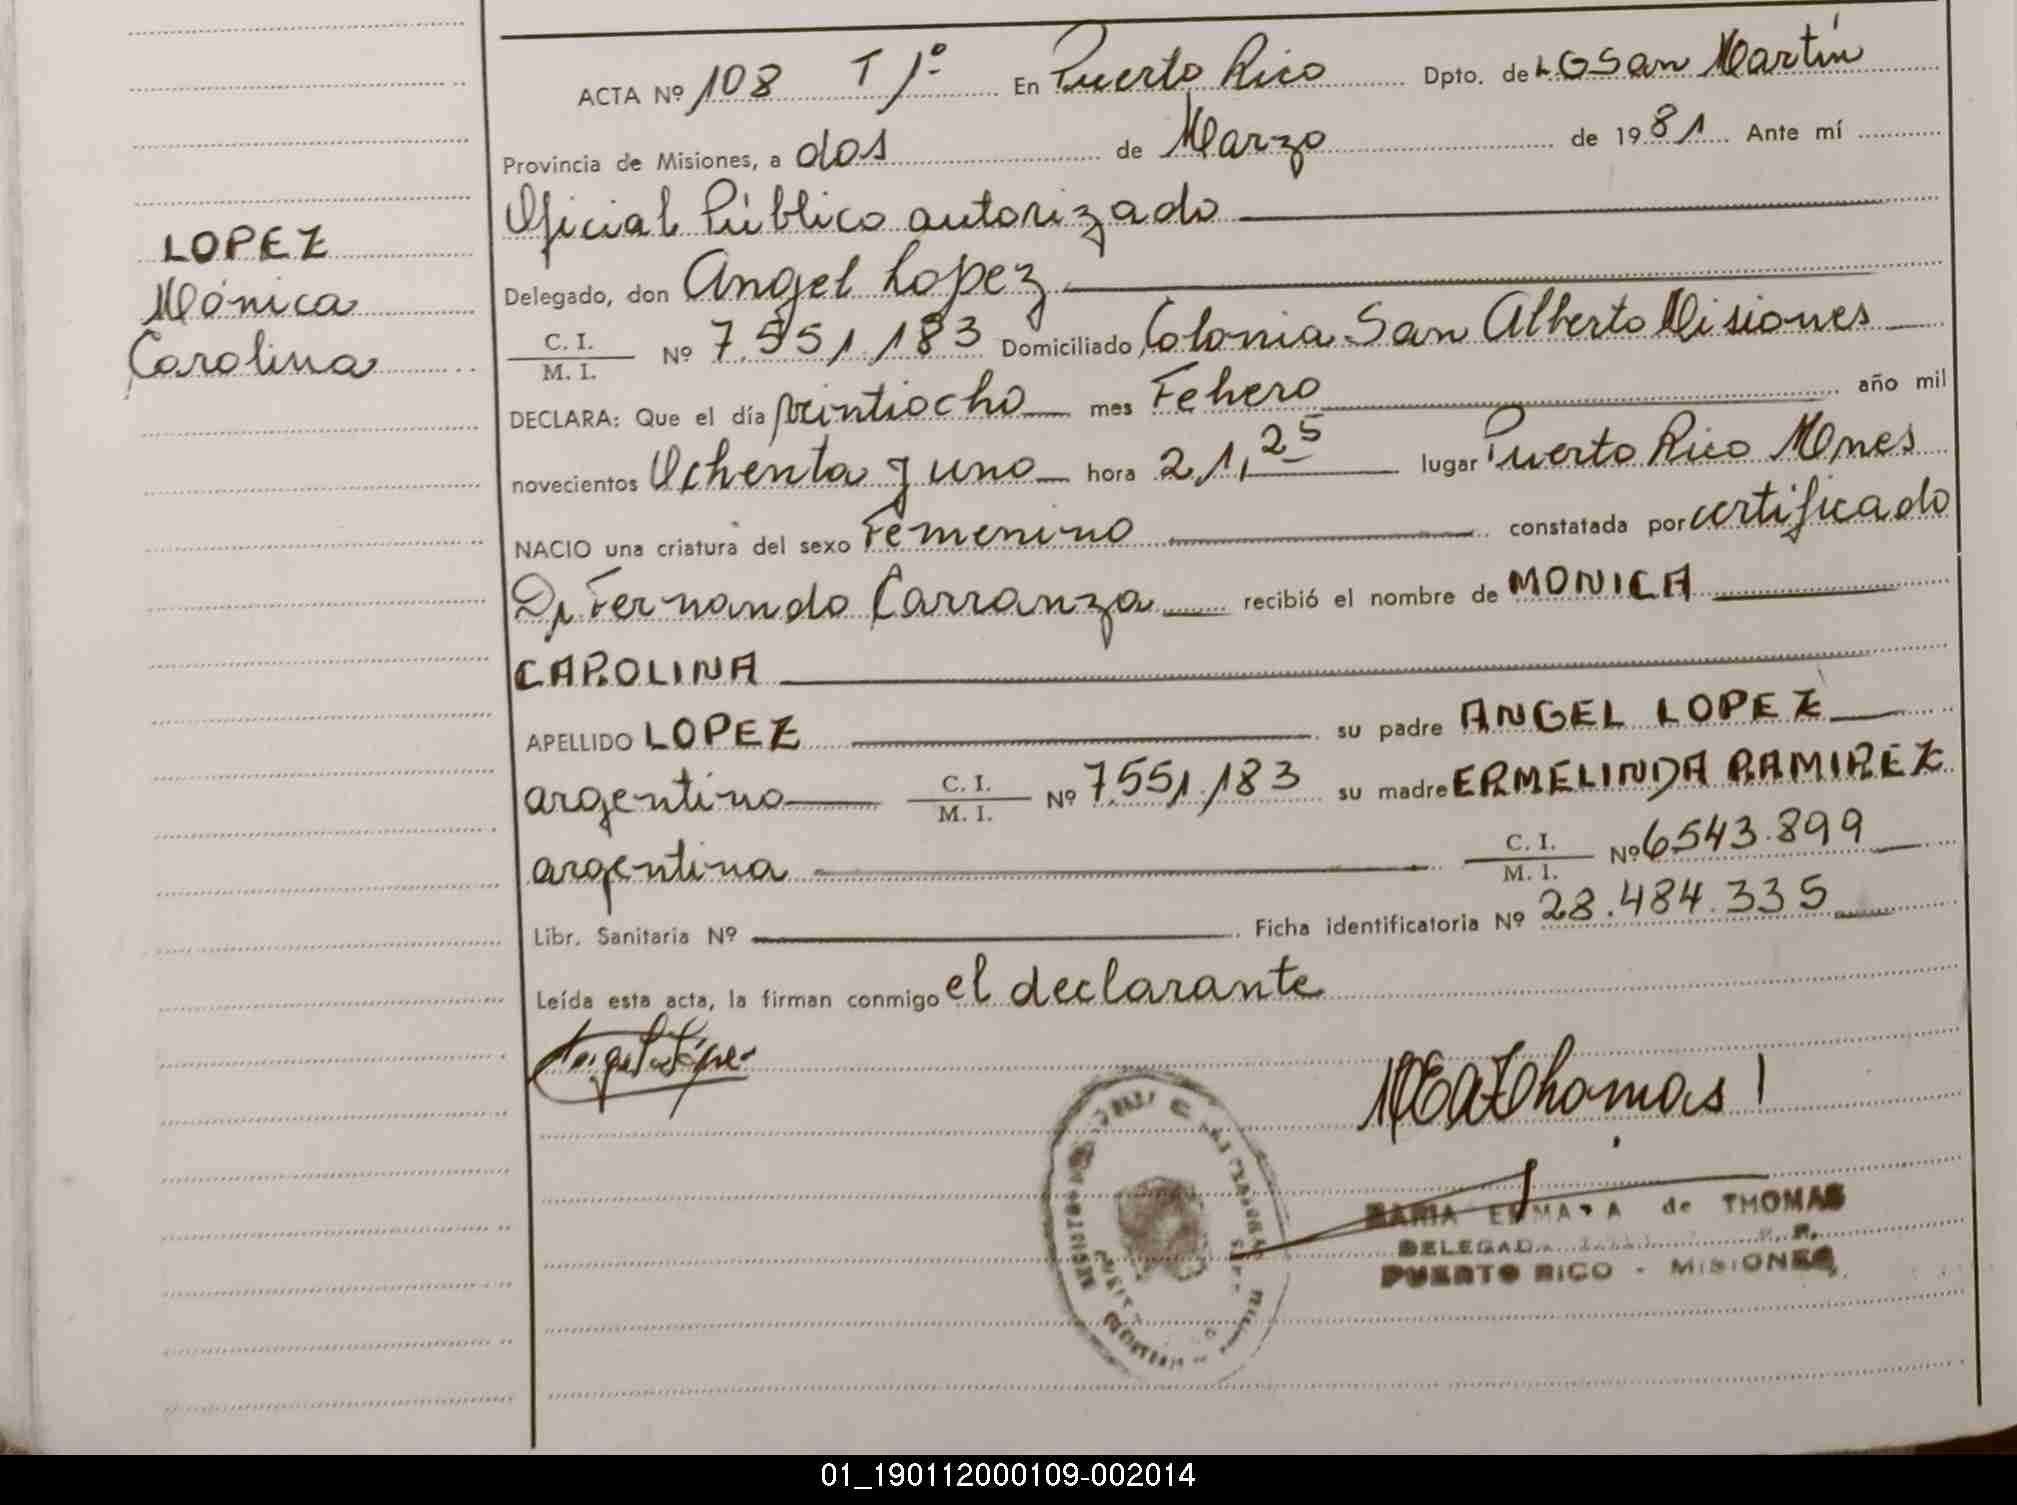 LOPEZ
Mónica
Carolina
ACTA Nº 108 T 1º En Puerto Rico Dpto. de L G San Martín
Provincia de Misiones, a dos de Marzo de 1981 Ante mí
Oficial Público autorizado
Delegado, don Angel Lopez
C. I.
M. I.
Nº 7.551.183 Domiciliado Colonia San Alberto Misiones
DECLARA: Que el día veintiocho mes Febero año mil
novecientos Ochenta y uno hora 21,25 lugar Puerto Rico Mnes
NACIO una criatura del sexo Femenino constatada por certificado
Dr. Fernando Carranza recibió el nombre de MONICA
CAROLINA
APELLIDO LOPEZ su padre ANGEL LOPEZ
argentino C. I. Nº 7.551.183 su madre ERMELINDA RAMIREZ
M. I.
argentina C. I. Nº 6543.899
M. I.
Libr. Sanitaria Nº Ficha identificatoria Nº 28.484.335
Leída esta acta, la firman conmigo el declarante
Angel Lópe
Thomas
MARIA de THOMAS
DELEGADA
PUERTO RICO - MISIONES
01_190112000109-002014